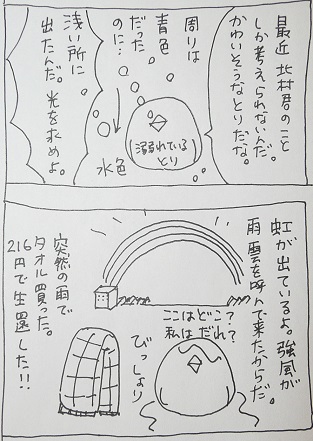 最近 北村君のこと
しか考えられないんだ。
かわいそうなとりだな。
周りは
青色
だった
のに…
溺れている
とり
水色
浅い所に
出たんだ。光を求めよ。
虹が出ているよ。強風が
雨雲を呼んで来たからだ。
ここはどこ?
私はだれ?
びっしょり
突然の雨で
タオル買った。
216円で生還した!!